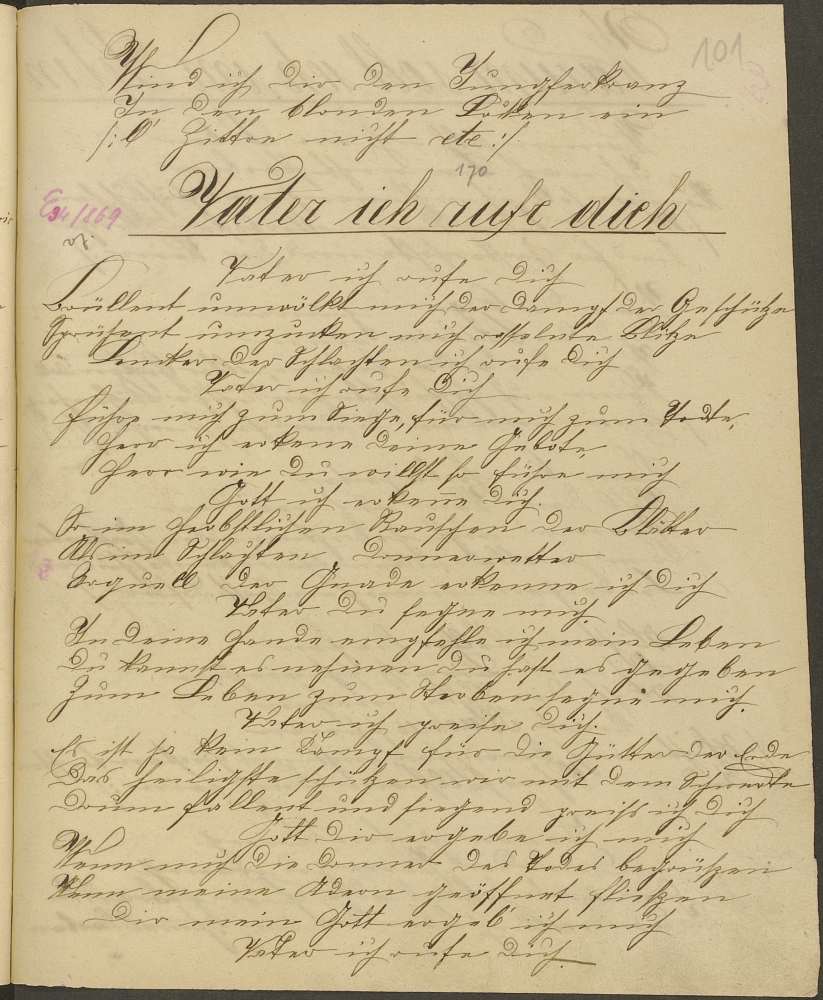 101
Wind ich dir den Jungferkranz
In den blonden Loken ein
/: O' Zittre nicht etc :/
170
Vater ich rufe dich
E34/869
Vater ich rufe Dich
Brüllent umwölkt mich der Dampf der Geschütze
Sprühent umzucken mich rasselnte Blitze
Lencker der Schlachten ich rufe Dich
Vater ich rufe Dich
Führe mich zum Siege, für mich zum Todte,
Herr ich erkene Deine Gebote,
Herr wie Du willst so führe mich
Gott ich erkene Dich.
So im herbstlichen Rauschen der Blätter
Als im Schlachten Donnerwetter
Urquell der Gnade erkenne ich Dich
Vater Du segne mich
In Deine Hände empfehle ich mein Leben
Du kannst es nehmen Du hast es gegeben
Zum Leben zum Sterben segne mich.
Vater ich preise Dich.
Es ist ja kein Kampf für die Gütter der Erde
Das heiligste schützen wir mit dem Schwerdte
Drum fallent und siegend preiss ich Dich
Gott Dir ergebe ich mich
Wenn mich die Donner des Todes begrüßen
Wenn meine Adern geöffnet fließen
Dir mein Gott ergeb' ich mich
Vater ich rufe Dich.